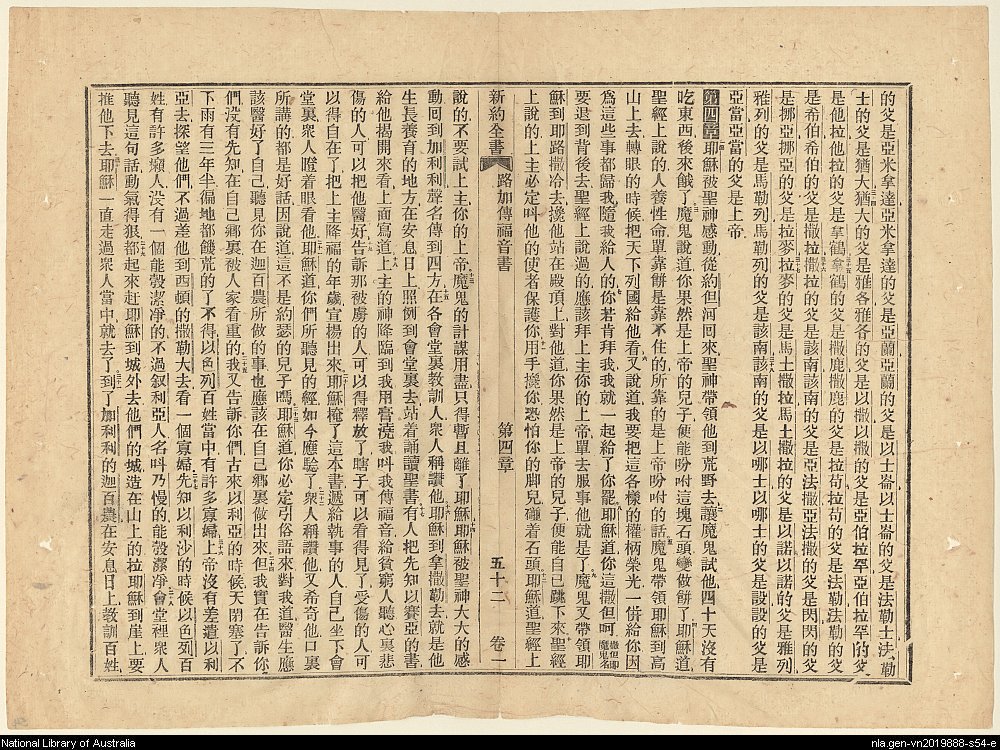 的父是亞米拿達亞米拿達的父是亞蘭亞蘭的父是以士崙以士崙的父是法勒士法勒
士的父是猶大猶大的父是雅各雅各的父是以撒以撒的父是亞伯拉罕亞伯拉罕的父
是他拉他拉的父是拿鶴拿鶴的父是撒鹿撒鹿的父是拉苟拉苟的父是法勒法勒的父
是希伯希伯的父是撒拉撒拉的父是該南該南的父是亞法撒亞法撒的父是閃閃的父
是挪亞挪亞的父是拉麥拉麥的父是馬土撒拉馬土撒拉的父是以諾以諾的父是雅列
雅列的父是馬勒列馬勒列的父是該南該南的父是以哪士以哪士的父是設設的父是
亞當亞當的父是上帝
第四章耶穌被聖神感動從約但河回來聖神帶領他到荒野去讓魔鬼試他四十天沒有
吃東西後來餓了魔鬼說道你果然是上帝的兒子便能吩咐這塊石頭變做餅了耶穌道
聖經上說的人養性命單靠餅是靠不住的所靠的是上帝吩咐的話魔鬼帶領耶穌到高
山上去轉眼的時候把天下列國給他看又說道我要把這各樣的權柄榮光一併給你因
爲這些事都歸我隨我給人的你若肯拜我我就一起給了你罷耶穌道你這撒但呵撒但卽魔鬼名
要退到背後去聖經上說過的應該拜上主你的上帝單去服事他就是了魔鬼又帶領耶
穌到耶路撒冷去攙他站在殿頂上對他道你果然是上帝的兒子便能自己跳下來聖經
上說的上主必定叫他的使者保護你用手攙你恐怕你的脚兒碰着石頭耶穌道聖經上
新約全書 路加傳福音書 第四章 五十二 卷一
說的不要試上主你的上帝魔鬼的計謀用盡只得暫且離了耶穌耶穌被聖神大大的感
動回到加利利聲名傳到四方在各會堂裏教訓人衆人稱讚他耶穌到拿撒勒去就是他
生長養育的地方在安息日上照例到會堂裏去站着誦讀聖書有人把先知以賽亞的書
給他揭開來看上面寫道上主的神降臨到我用膏澆我叫我傳福音給貧窮人聽心裏悲
傷的人可以把他醫好告訴那被虜的人可以得釋放了瞎子可以看得見了受傷的人可
以得自在了把上主降福的年歲宣揚出來耶穌掩了這本書遞給執事的人自己坐下會
堂裏衆人瞪着眼看他耶穌道你們所聽見的經如今應驗了衆人稱讚他又希奇他口裏
所講的都是好話因說道這不是約瑟的兒子嗎耶穌道你必定引俗語來對我道醫生應
該醫好了自己聽見你在迦百農所做的事也應該在自己鄉裏做出來但我實在告訴你
們沒有先知在自己鄉裏被人家看重的我又告訴你們古來以利亞的時候天閉塞了不
下雨有三年半徧地都饑荒的了不得以色列百姓當中有許多寡婦上帝沒有差遣以利
亞去探望他們不過差他到西頓的撒勒大去看一個寡婦先知以利沙的時候以色列百
姓有許多癩人沒有一個能彀潔淨的不過叙利亞人名叫乃慢的能彀潔淨會堂裡衆人
聽見這句話動氣得狠都起來赶耶穌到城外去他們的城造在山上的拉耶穌到崖上要
推他下去耶穌一直走過衆人當中就去了到了加利利的迦百農在安息日上教訓百姓
National Library of Australia
nla.gen-vn2019888-s54-e